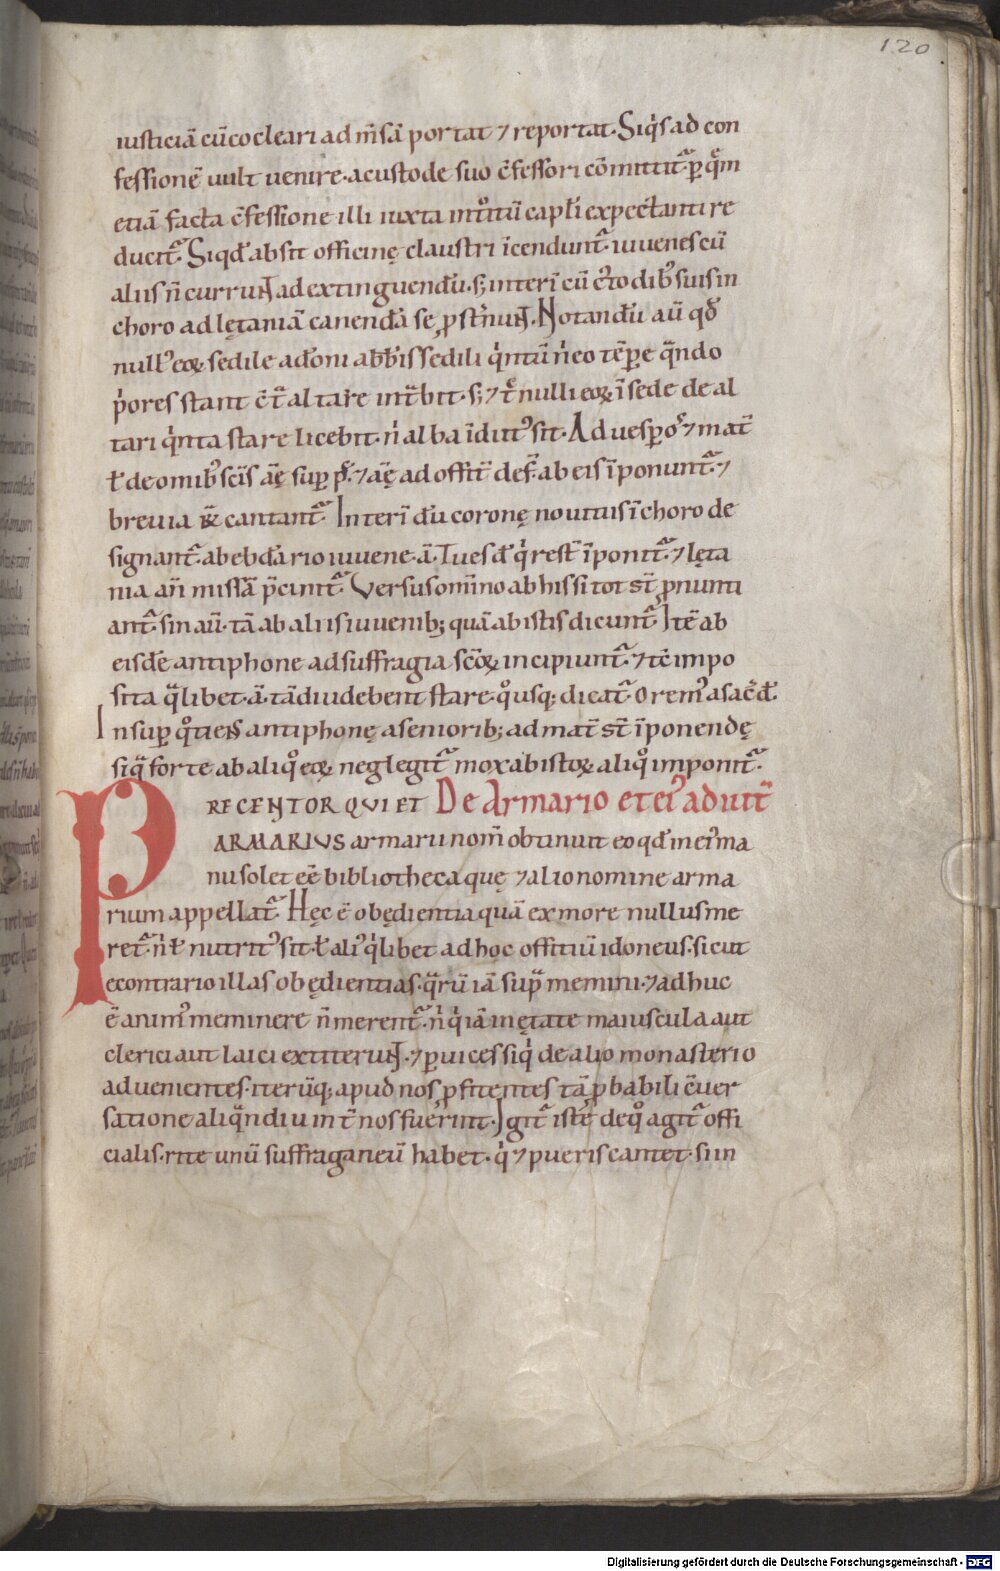 120
iusticiā cū cocleari ad m̄sā portat ⁊ reportat. Siq̇s ad con
fessionē uult uenire. a custode suo c̄fessori cōmittit᷑. ꝑ qͦm
etiā facta c̄fessione illi iuxta int̊itū capłi expectanti re
ducit᷑. Siqđ absit officinę claustri īcendunt᷑. iuuenes cū
aliis n̄ currunt ad extinguendū. s; interī cū c̓todib᷒ suis in
choro ad lętaniā canendā se ꝓst̓nunt. Notandū aū qđ
null᷒ eoꝝ sedile adoni abb̄is sedili q̇ntū n̓ eo tēꝑe q̄ndo
p̓ores stant c̄t̄ altare int̄bit. s; ⁊ t̊ nulli eoꝝ ī sede de al
tari q̇nta stare licebit. n̓ alba īdut᷒ sit. Ad uesꝑos ⁊ mat̄
ł de omib᷒ scīs āę suꝑ ps̄. ⁊ āę ad offitī def̄. ab eis īponunt᷑. ⁊
breuia ꝶ cantant᷑. Interī dū coronę nouius ī choro de
signant᷑. ab ebdōario iuuene .ā. Tu es đ q̇ rest̄ īponit᷑. ⁊ lęta
nia an̄ missā p̄cinit᷑. Versus omīno ab his si tot st̄ ꝓnunti
ant᷑. sin aū. tā ab aliis iuuenib; quā ab istis dicunt᷑. Itē ab
eisdē antiphone ad suffragia sc̄oꝝ incipiunt᷑. ⁊ tē impo
sita q̄libet .ā. tādiu debent stare. q̊usq; dicat᷑. Orem᷒ a sac̄đ.
Insuꝑ q̊tiens antiphonę a seniorib; ad mat̄ st̄ īponendę
siq̄ forte ab aliq̊ eoꝝ neglegit᷑ mox ab istoꝝ aliq̊ imponit᷑.
PRECENTOR QUI ET De Armario et ei᷒ adiut̄
ARMARIUS armarii nom̄ obtinuit eo qđ in ei᷒ ma
nu solet eē bibliotheca quę ⁊ alio nomine arma
rium appellat᷑. Hęc ē obędientia quā ex more nullus me
ret᷑. n̓ ł nutrit᷒ sit. ł ali᷒ q̇libet ad hoc offitiū idoneus. sicut
econtrario illas obędientias. q̄rū iā sup̄ memini. ⁊ adhuc
ē anim᷒ meminere n̄ merent᷑. n̓ q̇ iā in ętate maiuscula aut
clerici aut laici extiterunt. ⁊ ꝑ uices siq̇ de alio monasterio
aduenientes. iterūq; apud nos ꝓfitentes tā ꝓbabili c̄uer
satione aliq̄ndiu int̄ nos fuerint. Igit᷑ iste de q̊ agit᷑ offi
cialis. rite unū suffraganeū habet. q̇ ⁊ pueris cantet. si in
Digitalisierung gefördert durch die Deutsche Forschungsgemeinschaft - DFG